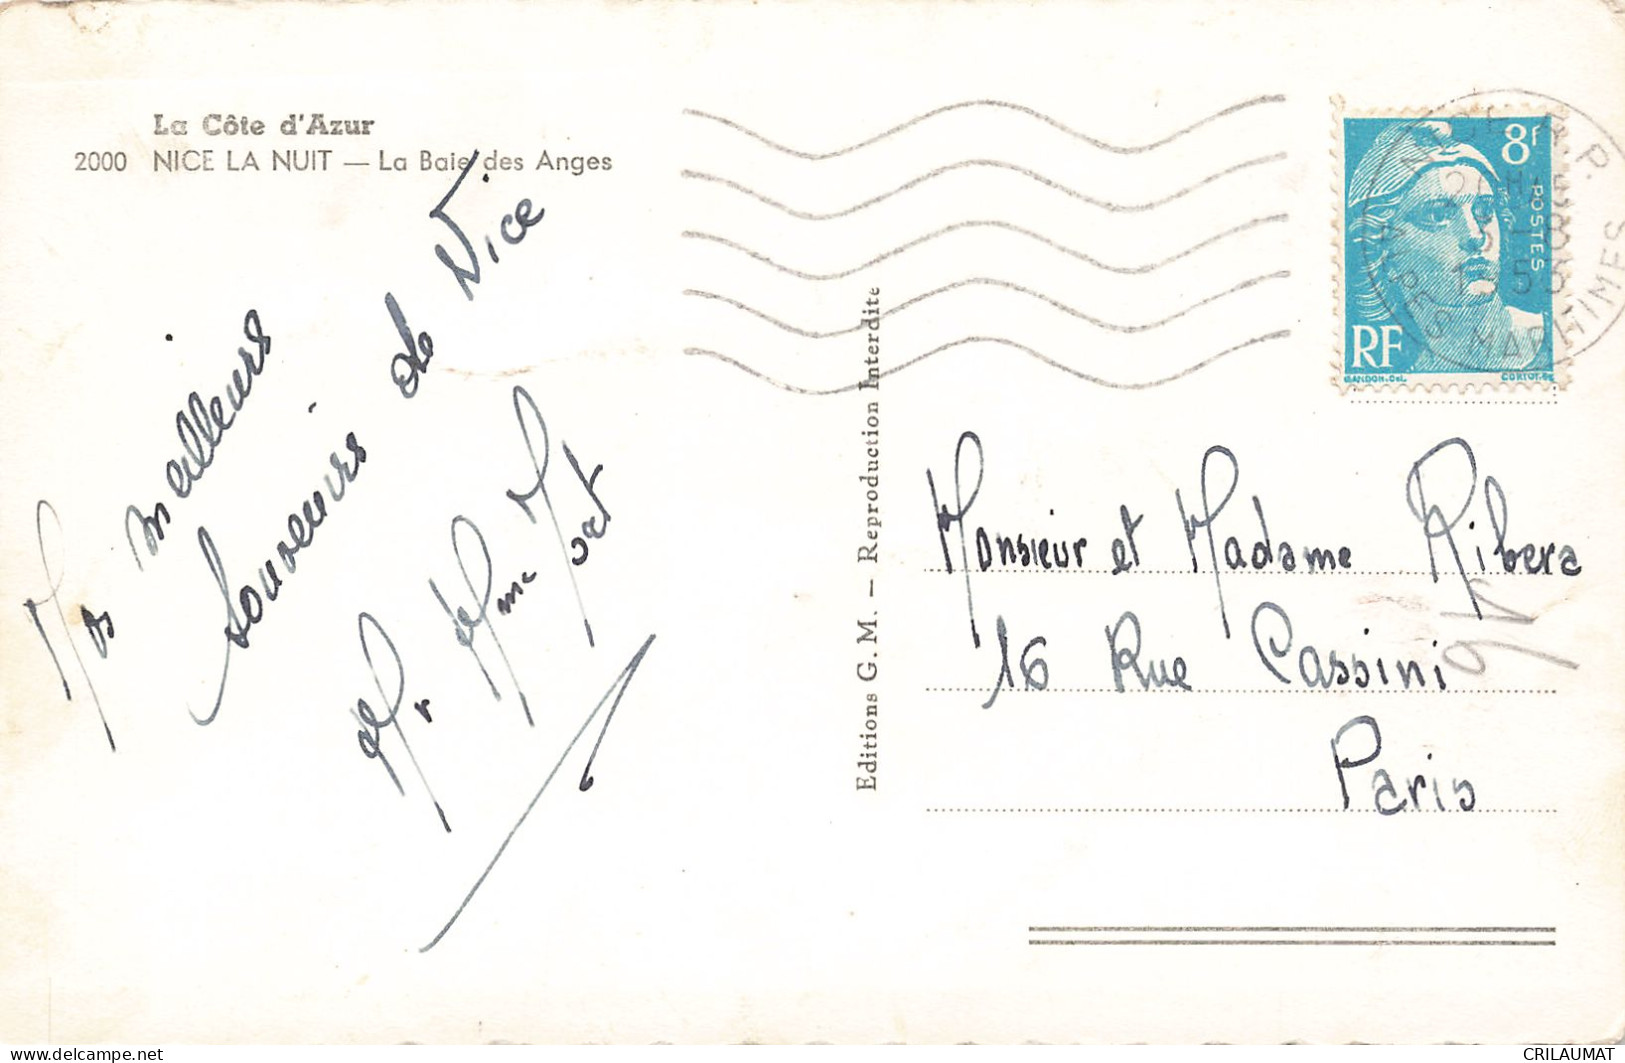 La Côte d'Azur
2000 NICE LA NUIT — La Baie des Anges
Nos meilleurs
souvenirs de Nice
de Mr de Mme Mort
Editions G. M. — Reproduction Interdite
8f
POSTES
RF
GANDON.DEL.
CORTOT.SC
NICE R.P.
1953
MARITIMES
Monsieur et Madame Ribera
16 Rue Cassini
Paris
www.delcampe.net
CRILAUMAT